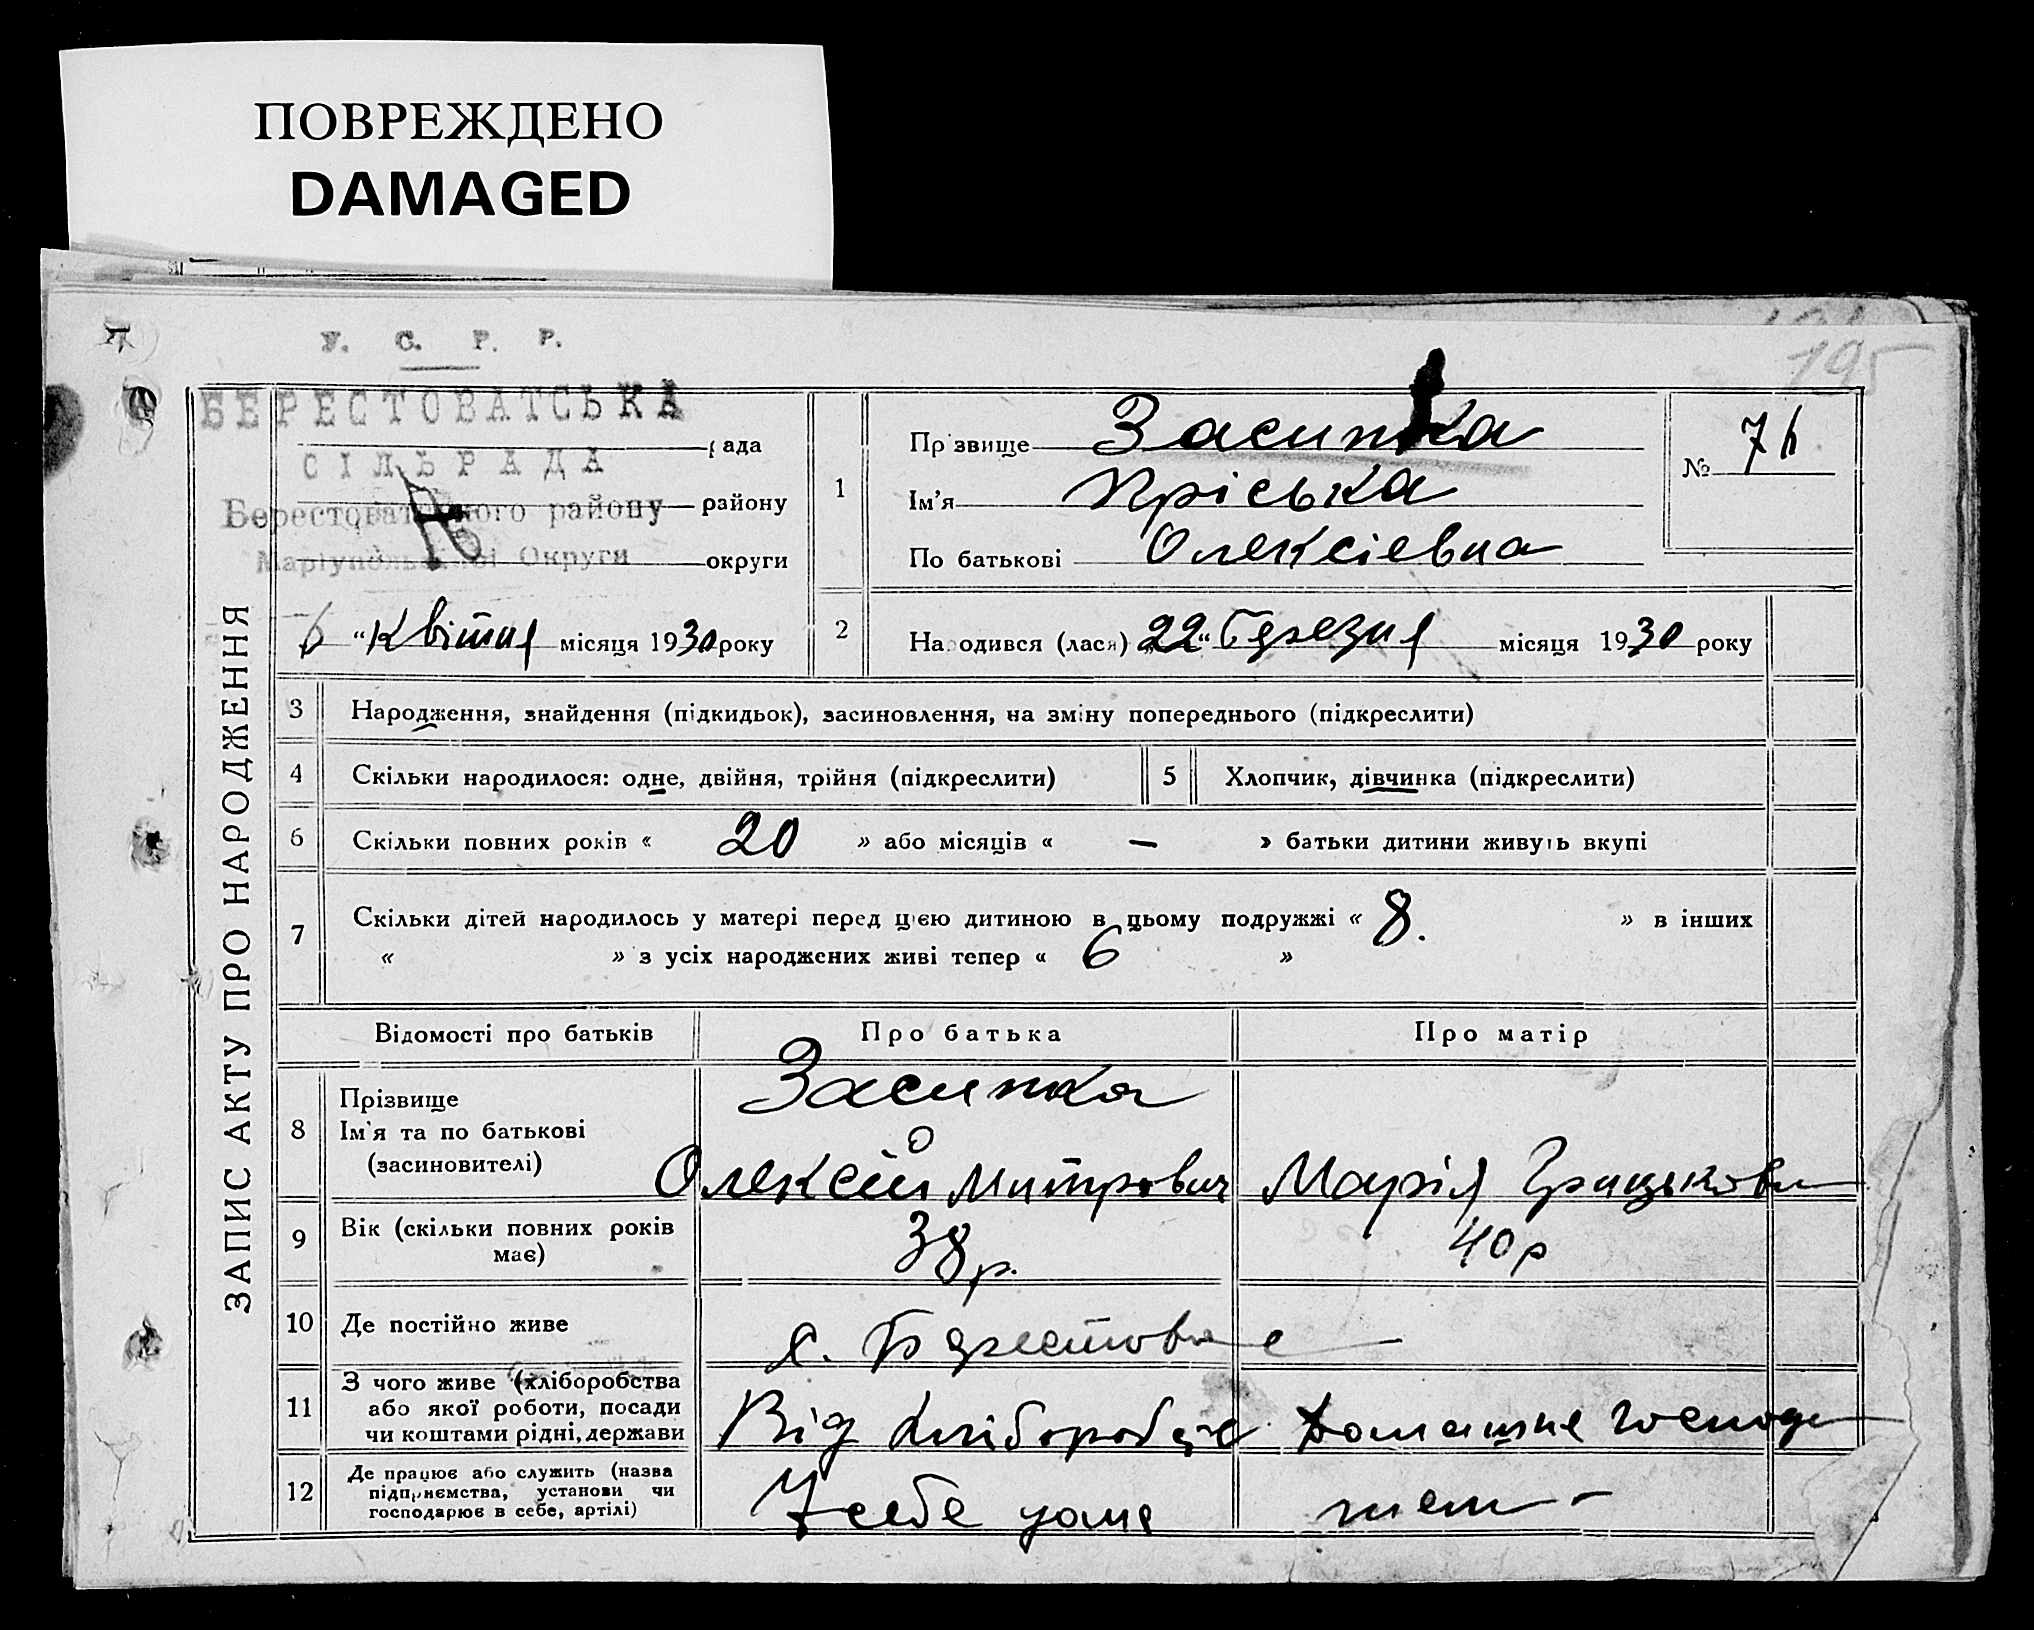 ПОВРЕЖДЕНО
DAMAGED
195
У. С. Р. Р.
БЕРЕСТОВАТСЬКА
рада
СІЛЬРАДА
Берестоватського району району
Маріупольської Округи округи
6 "Квітня місяця 1930 року
ЗАПИС АКТУ ПРО НАРОДЖЕННЯ
1 Прізвище Засипка
Ім'я Пріська
По батькові Олексієвна
№ 76
2 Народився (лася) „22“ Березня місяця 1930 року
3 Народження, знайдення (підкидьок), засиновлення, на зміну попереднього (підкреслити)
4 Скільки народилося: одне, двійня, трійня (підкреслити) 5 Хлопчик, дівчинка (підкреслити)
6 Скільки повних років « 20 » або місяців « — » батьки дитини живуть вкупі
7 Скільки дітей народилось у матері перед цією дитиною в цьому подружжі « 8. » в інших
« » з усіх народжених живі тепер « 6 »
Відомості про батьків Про батька Про матір
8 Прізвище
Ім'я та по батькові
(засиновителі)
Засипка
Олексій Митрович Марія Грицькови
9 Вік (скільки повних років
має)
38 р. 40 р
10 Де постійно живе х. Берестове
11 З чого живе (хліборобства
або якої роботи, посади
чи коштами рідні, держави
Від хліборобства Домашнє господ
12 Де працює або служить (назва
підприємства, установи чи
господарює в себе, артілі)
У себе дома тем –